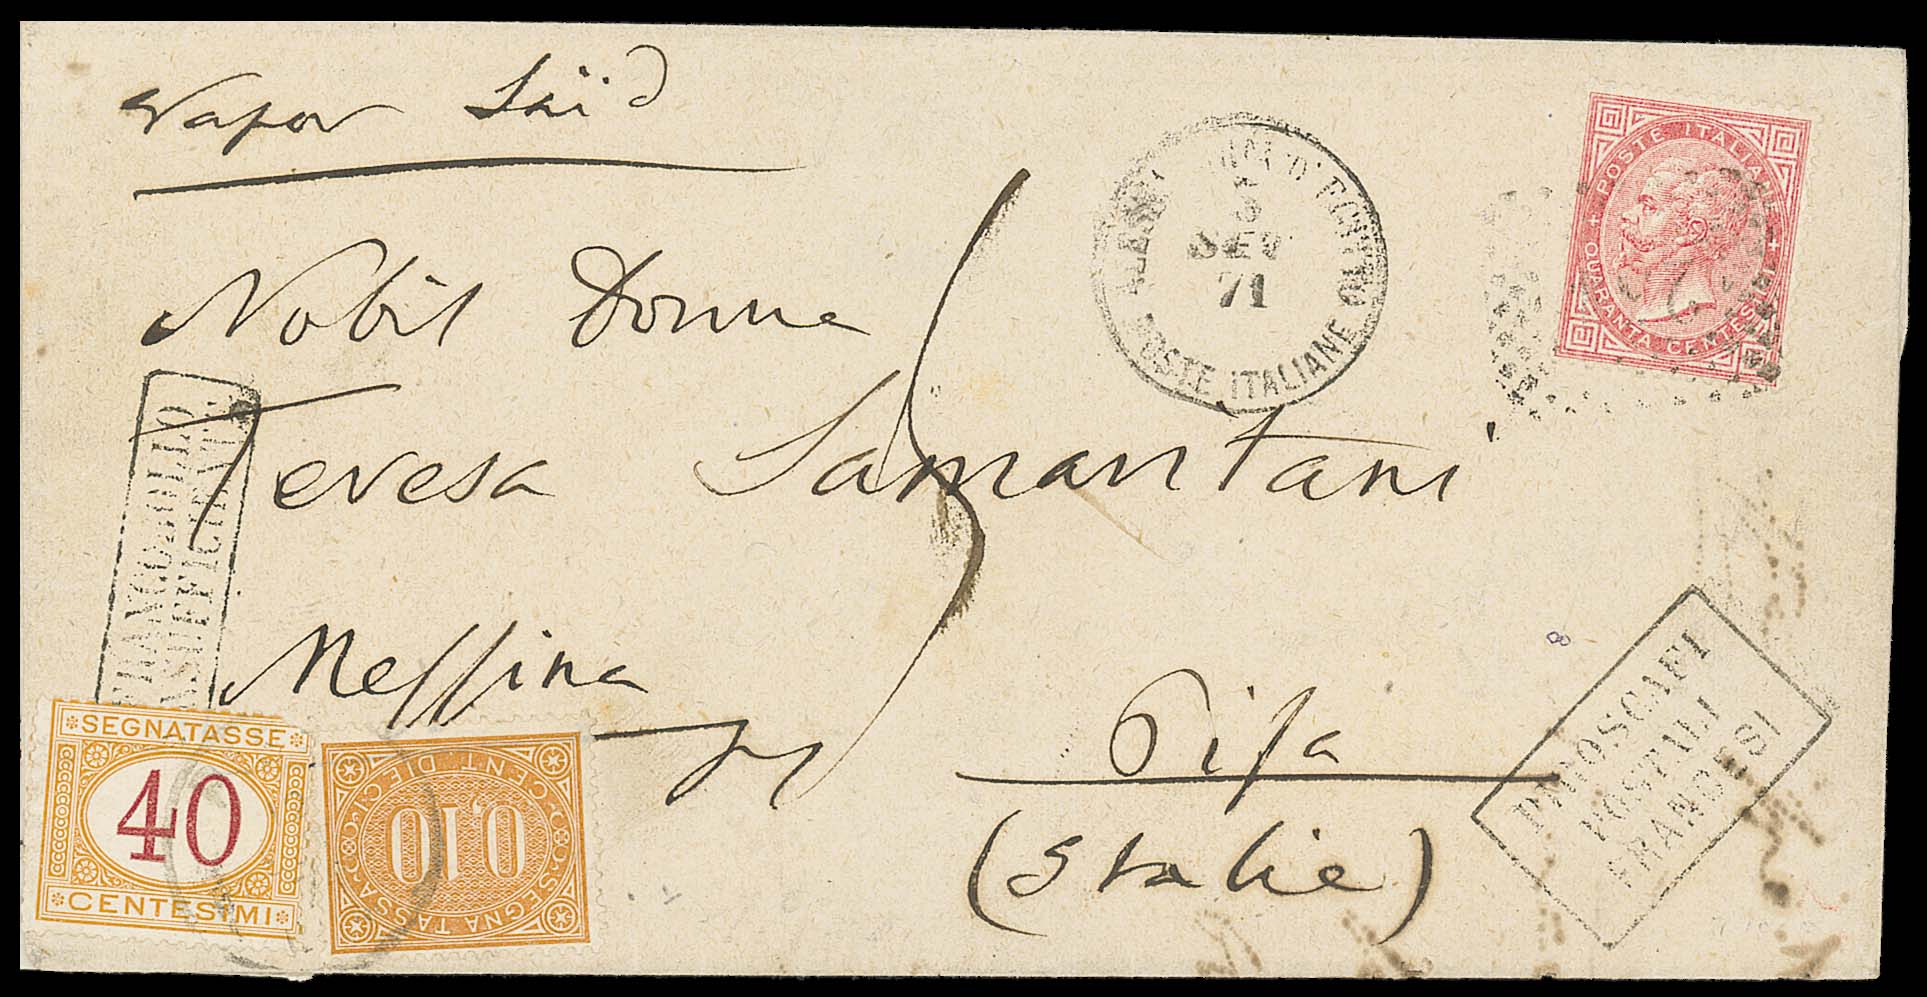 Vapor Saïd
ALESSANDRIA D'EGITTO
5
SET
71
POSTE ITALIANE
POSTE ITALIANE
QUARANTA CENTESIMI
Nobil Donna
Teresa Samantani
Messina
Pisa
(Italie)
FRANCOBOLLO
INSUFFICIENTE
PIROSCAFI
POSTALI
FRANCESI
SEGNATASSE
40
CENTESIMI
SEGNA TASSA
0,10
CENT. DIECI
8